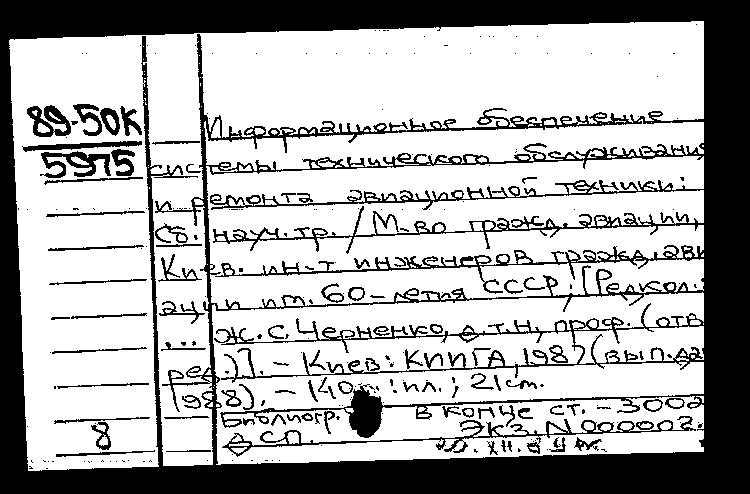 89-50К
5975
Информационное обеспечение
системы технического обслуживания
и ремонта авиационной техники:
Сб. науч. тр. / М-во гражд. авиации,
Киев. ин-т инженеров гражд. ави
ации им. 60-летия СССР; [Редкол.:
... Ж.С. Черненко, д.т.н., проф. (отв.
ред.)]. - Киев: КИИГА, 1987 (вып. дан
1988). - 140 с.: ил.; 21 см.
Библиогр. в конце ст. - 300э
ДСП. Экз. N 000002.
8